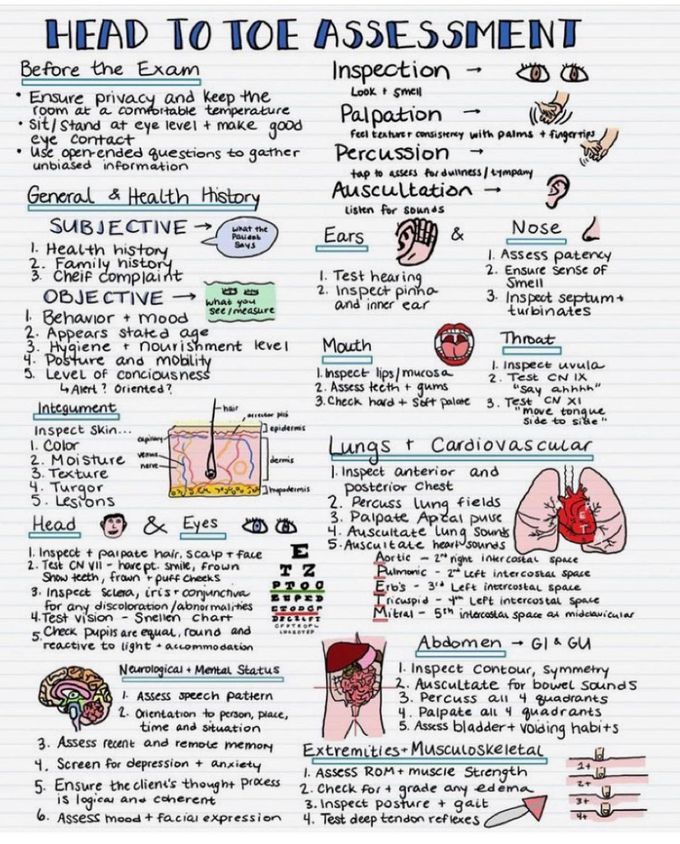 HEAD TO TOE ASSESSMENT
Before the Exam
• Ensure privacy and keep the
room at a comfortable temperature
• Sit/Stand at eye level + make good
eye contact
• Use open-ended questions to gather
unbiased information
Inspection →
Look + smell
Palpation →
Feel texture + consistency with palms + fingertips
Percussion →
tap to assess for dullness / tympany
Auscultation →
Listen for sounds
General & Health History
SUBJECTIVE →
what the
Patient
Says
1. Health history
2. Family history
3. Cheif complaint
OBJECTIVE →
what you
see/measure
1. Behavior + mood
2. Appears stated age
3. Hygiene + nourishment level
4. Posture and mobility
5. Level of conciousness
↳ Alert? Oriented?
Ears
&
Nose
1. Test hearing
2. Inspect pinna
and inner ear
1. Assess patency
2. Ensure sense of
Smell
3. Inspect septum +
turbinates
Mouth
1. Inspect lips/mucosa
2. Assess teeth + gums
3. Check hard + Soft palate
Throat
1. Inspect uvula
2. Test CN IX
"Say ahhhh"
3. Test CN XI
"move tongue
side to side"
Integument
Inspect Skin...
1. Color
2. Moisture
3. Texture
4. Turgor
5. Lesions
hair
arrector pili
capillary
venous
nerve
epidermis
dermis
hypodermis
Lungs + Cardiovascular
1. Inspect anterior and
posterior Chest
2. Percuss lung fields
3. Palpate Apical pulse
4. Auscultate lung sounds
5. Auscultate heart sounds
Aortic - 2nd right intercostal space
Pulmonic - 2nd Left intercostal space
Erb's - 3rd Left intercostal space
Tricuspid - 4th Left intercostal space
Mitral - 5th intercostal space at midclavicular
Head
&
Eyes
1. Inspect + palpate hair, scalp + face
2. Test CN VII - have pt. smile, frown
Show teeth, frown + puff cheeks
3. Inspect sclera, iris + conjunctiva
for any discoloration/abnormalities
4. Test vision - Snellen Chart
5. Check pupils are equal, round and
reactive to light + accommodation
E
T Z
Neurological + Mental Status
1. Assess speech pattern
2. Orientation to person, place,
time and situation
3. Assess recent and remote memory
4. Screen for depression + anxiety
5. Ensure the client's thought process
is logical and coherent
6. Assess mood + facial expression
Abdomen → GI & GU
1. Inspect Contour, Symmetry
2. Auscultate for bowel sounds
3. Percuss all 4 quadrants
4. Palpate all 4 quadrants
5. Assess bladder + voiding habits
Extremities + Musculoskeletal
1. Assess ROM + muscle Strength
2. Check for + grade any edema
3. Inspect posture + gait
4. Test deep tendon reflexes
1+
2+
3+
4+